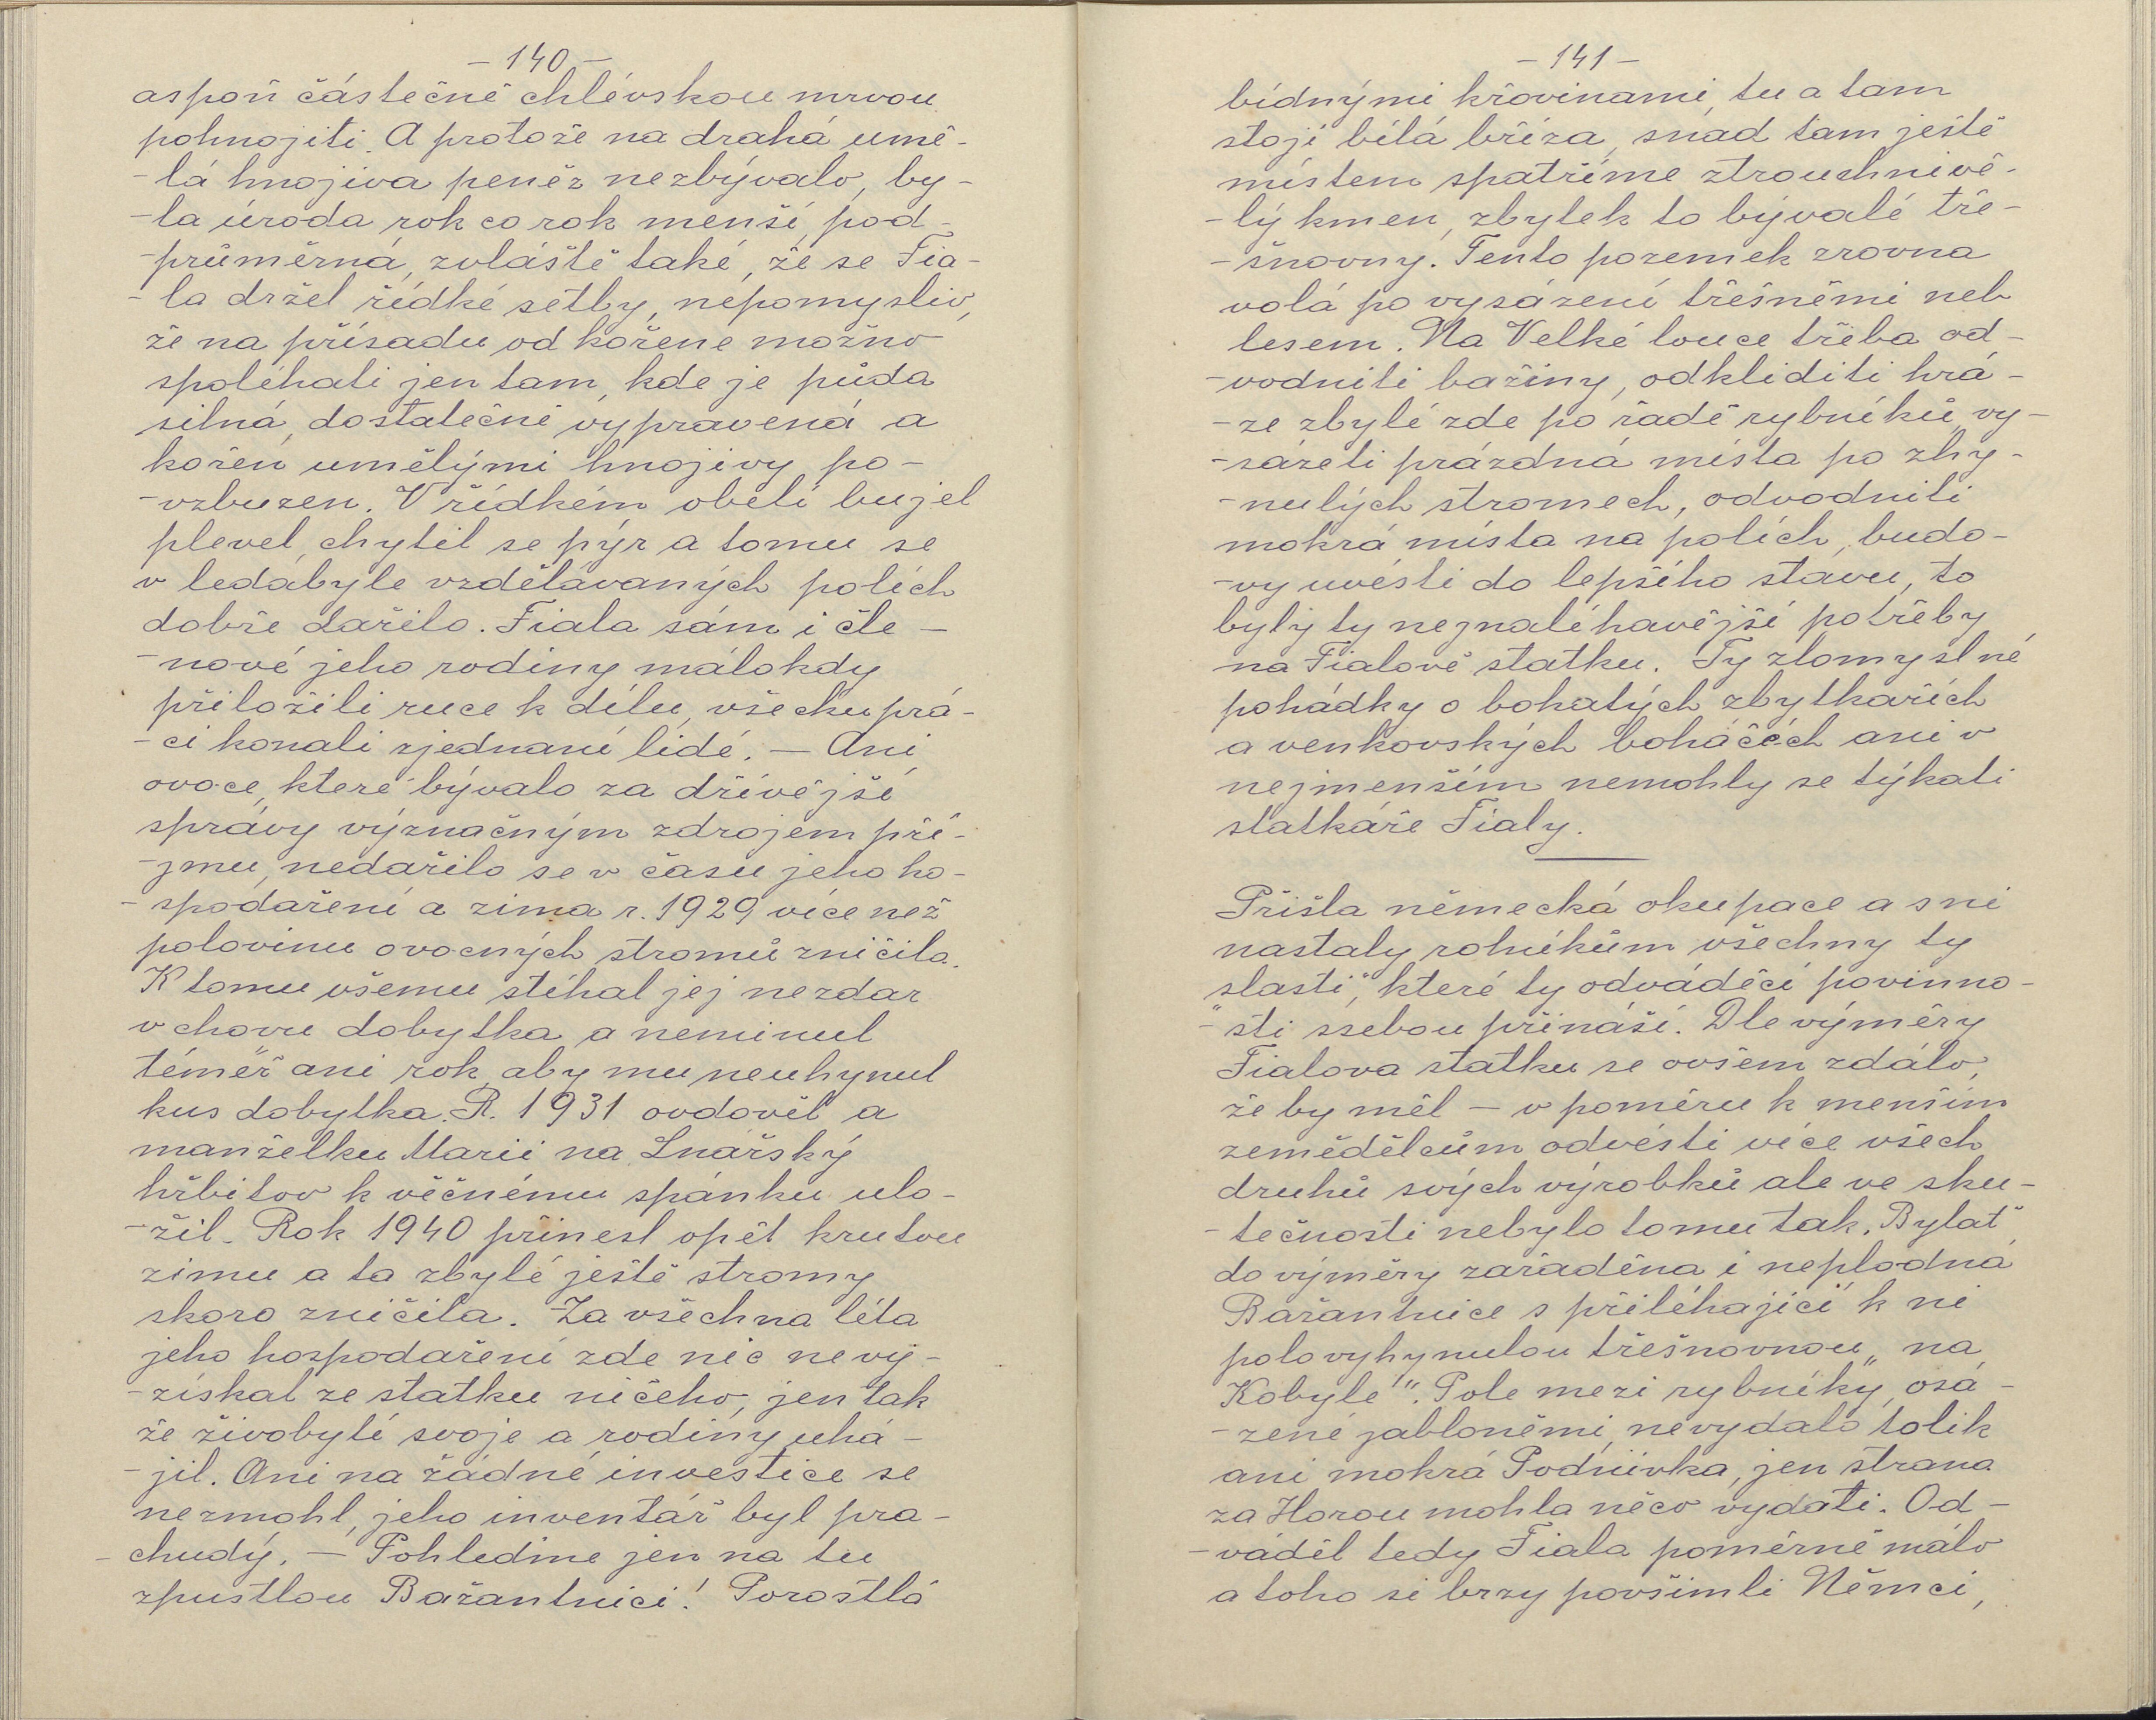 – 140 –
aspoň částečně chlévskou mrvou
pohnojiti. A protože na drahá umě-
-lá hnojiva peněz nezbývalo, by-
-la úroda rok co rok menší, pod-
-průměrná, zvláště také, že se Fia-
-la držel řídké setby, nepomysliv,
že na přísadu od kořene možno
spoléhati jen tam, kde je půda
silná, dostatečně vypravená a
kořen umělými hnojivy po-
-vzbuzen. V řídkém obelí bujel
plevel, chytil se pýr a tomu se
v ledabyle vzdělávaných polích
dobře dařilo. Fiala sám i čle-
-nové jeho rodiny málokdy
přiložili ruce k dílu, všecku prá-
-ci konali zjednaní lidé. — Ani
ovoce, které bývalo za dřívější
správy význačným zdrojem pří-
-jmu, nedařilo se v času jeho ho-
-spodaření a zima r. 1929 více než
polovinu ovocných stromů zničila.
K tomu všemu stíhal jej nezdar
v chovu dobytka a neminul
téměř ani rok, aby mu neuhynul
kus dobytka. R. 1931 ovdověl a
manželku Marii na Lnářský
hřbitov k věčnému spánku ulo-
-žil. Rok 1940 přinesl opět krutou
zimu a ta zbylé ještě stromy
skoro zničila. Za všechna léta
jeho hospodaření zde nic nevy-
-získal ze statku ničeho, jen tak
že živobytí svoje a rodiny uhá-
-jil. Ani na žádné investice se
nezmohl, jeho inventář byl pra-
-chudý. — Pohledme jen na tu
zpustlou Bažantnici! Porostlá
– 141 –
bídnými křovinami, tu a tam
stojí bílá bříza, snad tam ještě
místem spatříme ztrouchnivě-
-lý kmen, zbytek to bývalé tře-
-šnovny. Tento pozemek zrovna
volá po vysázení třešněmi neb
lesem. Na Velké louce třeba od-
-vodniti bažiny, odkliditi hrá-
-ze zbylé zde po řadě rybníků, vy-
-sázeti prázdná místa po zhy-
-nulých stromech, odvodniti
mokrá místa na polích, budo-
-vy uvésti do lepšího stavu, to
byly ty nejnaléhavější potřeby
na Fialově statku. Ty zlomyslné
pohádky o bohatých zbytkařích
a venkovských boháčích ani v
nejmenším nemohly se týkati
statkáře Fialy.
Přišla německá okupace a s ní
nastaly rolníkům všechny ty
„slasti“, které ty odváděcí povinno-
-sti ssebou přináší. Dle výměry
Fialova statku se ovšem zdálo,
že by měl — v poměru k menším
zemědělcům odvésti více všech
druhů svých výrobků ale ve sku-
-tečnosti nebylo tomu tak. Bylať
do výměry zařaděna i neplodná
Bažantnice s přiléhající k ní
polovyhynulou třešňovnou „na
Kobyle“. Pole mezi rybníky, osá-
-zené jabloněmi, nevydalo tolik
ani mokrá Podnivka, jen strana
za Horou mohla něco vydati. Od-
-váděl tedy Fiala poměrně málo
a toho si brzy povšimli Němci,